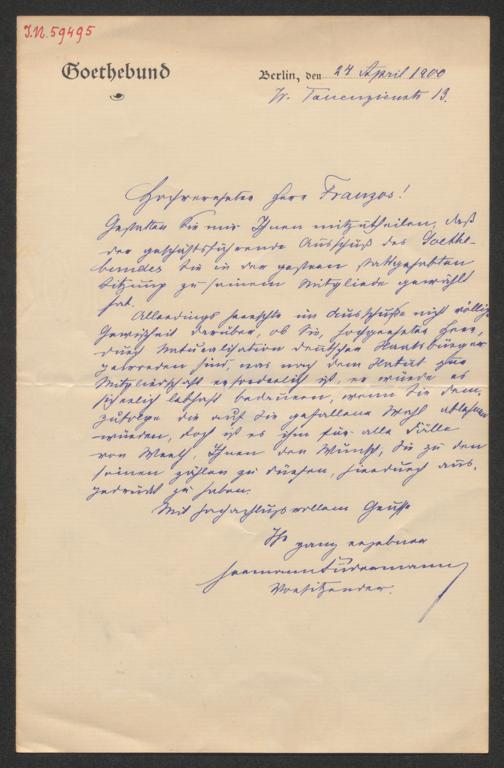 J.N. 59495
Goethebund
Berlin, den 24 April 1900
W. Tauenzienstr 13.
Hochverehrter Herr Franzos!
Gestatten Sie mir Ihnen mitzutheilen, daß
der geschäftsführende Ausschuß des Goethe-
bundes Sie in der gestern stattgehabten
Sitzung zu seinem Mitgliede gewählt
hat.
Allerdings herrschte im Ausschusse nicht völlige
Gewißheit darüber, ob Sie, hochgeehrter Herr,
durch Naturalisation deutscher Staatsbürger
geworden sind, was nach dem Statut zur
Mitgliedschaft erforderlich ist, er würde es
sicherlich lebhaft bedauern, wenn Sie dem-
zufolge die auf Sie gefallene Wahl ablehnen
würden, doch ist es ihm für alle Fälle
von Werth, Ihnen den Wunsch, Sie zu den
seinen zählen zu dürfen, hierdurch aus-
gedrückt zu haben.
Mit hochachtungsvollem Grusse
Ihr ganz ergebner
Hermann Sudermann
Vorsitzender.